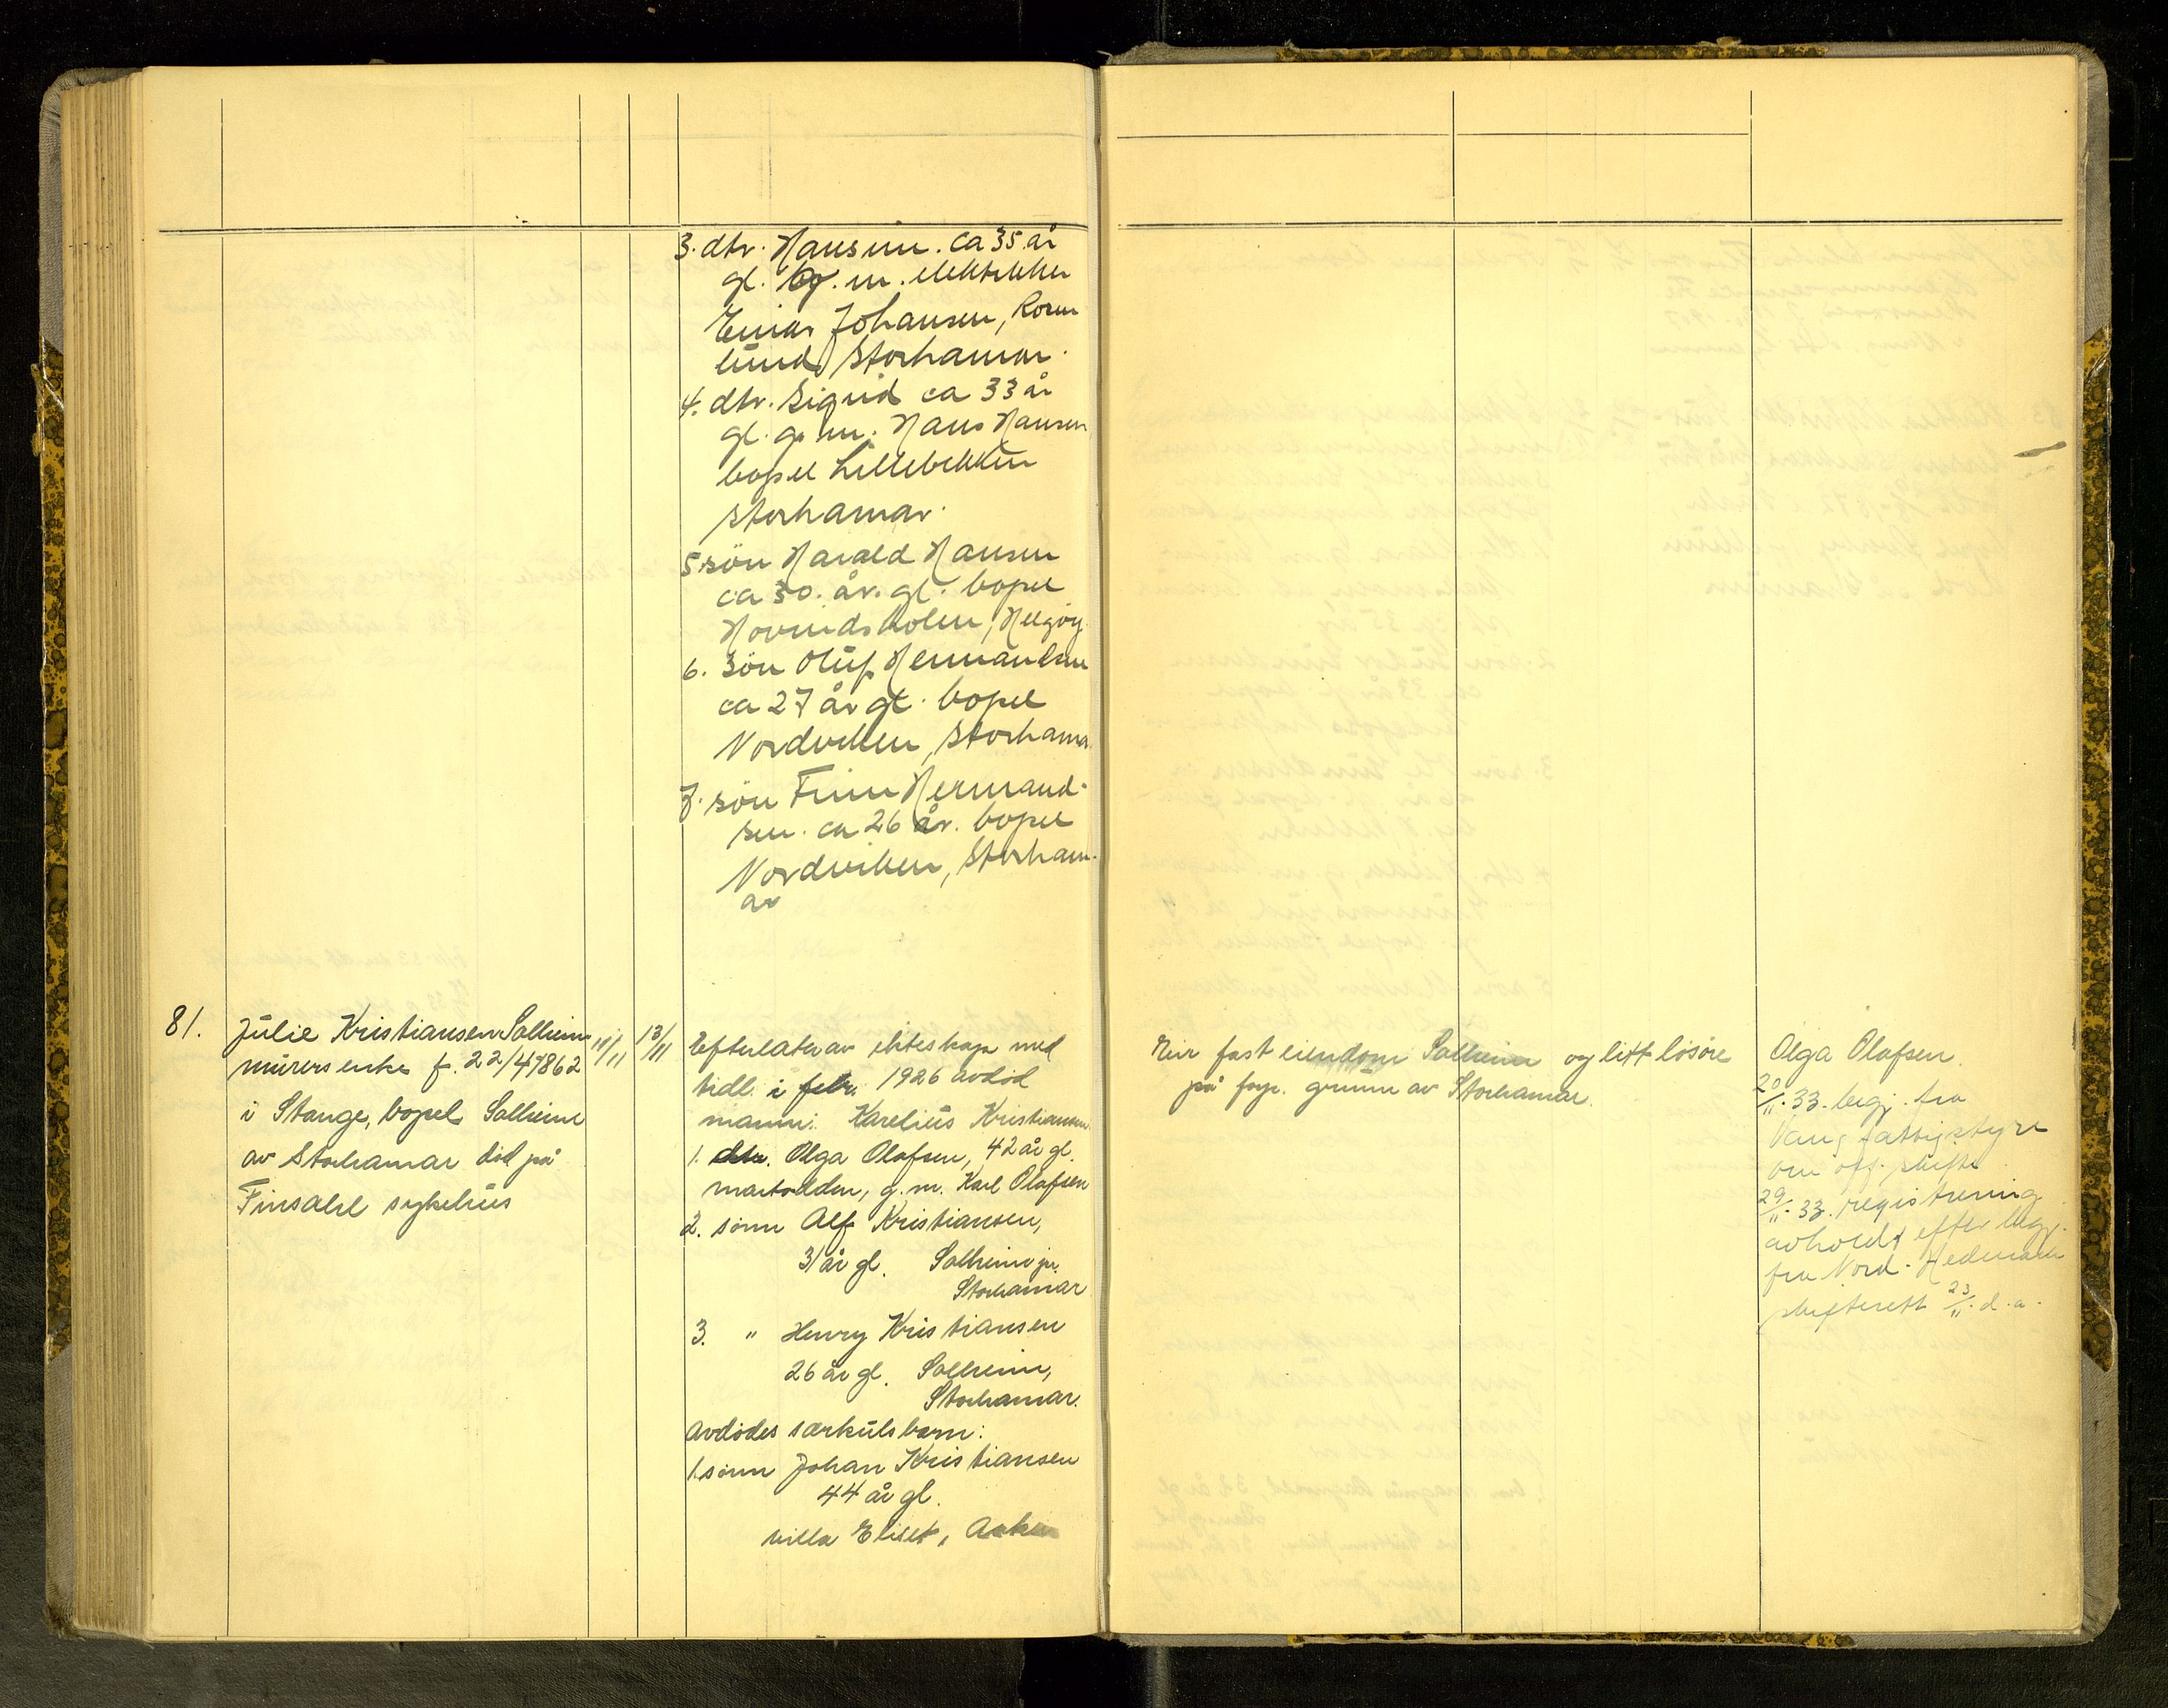 3. dtr. Hansine. ca 35 år
gl. g. m. elektriker
Einar Johansen, Rosen
lund, Storhamar.
4. dtr. Sigrid ca 33 år
gl. g. m. Hans Hansen
bopel Lillebekken
Storhamar.
5. søn Harald Hansen
ca 30. år. gl. bopel
Hovindsholm, Helgøy.
6. søn Oluf Hermansen
ca 27 år gl. bopel
Nordviken, Storhama
7. søn Finn Hermand-
sen. ca 26 år. bopel
Nordviken, Storham-
ar
81.
Julie Kristiansen Solheim
murers enke f. 22/4 1862
i Stange, bopel Solheim
av Storhamar død på
Finsahl sykehus
11/11
13/11
Efterlater av ekteskap med
tidl. i febr. 1926 avdød
mann: Karelius Kristiansen
1. dtr. Olga Olafsen, 42 år gl.
Martodden, g. m. Karl Olafsen
2. sønn Alf Kristiansen,
31 år gl. Solheim pr.
Storhamar
3. " Henry Kristiansen
26 år gl. Solheim,
Storhamar.
Avdødes særkulsbarn:
1. sønn Johan Kristiansen
44 år gl.
villa Eliset, Aker
Eier fast eiendom Solheim og litt løsøre
på fryr. grunn av Storhamar.
Olga Olafsen.
20/11. 33. begj. fra
Vang fattigstyre
om off. skifte
29/11. 33. registrering
avholdt efter begj.
fra Nord-Hedmark
skifterett 23/11. d. a.